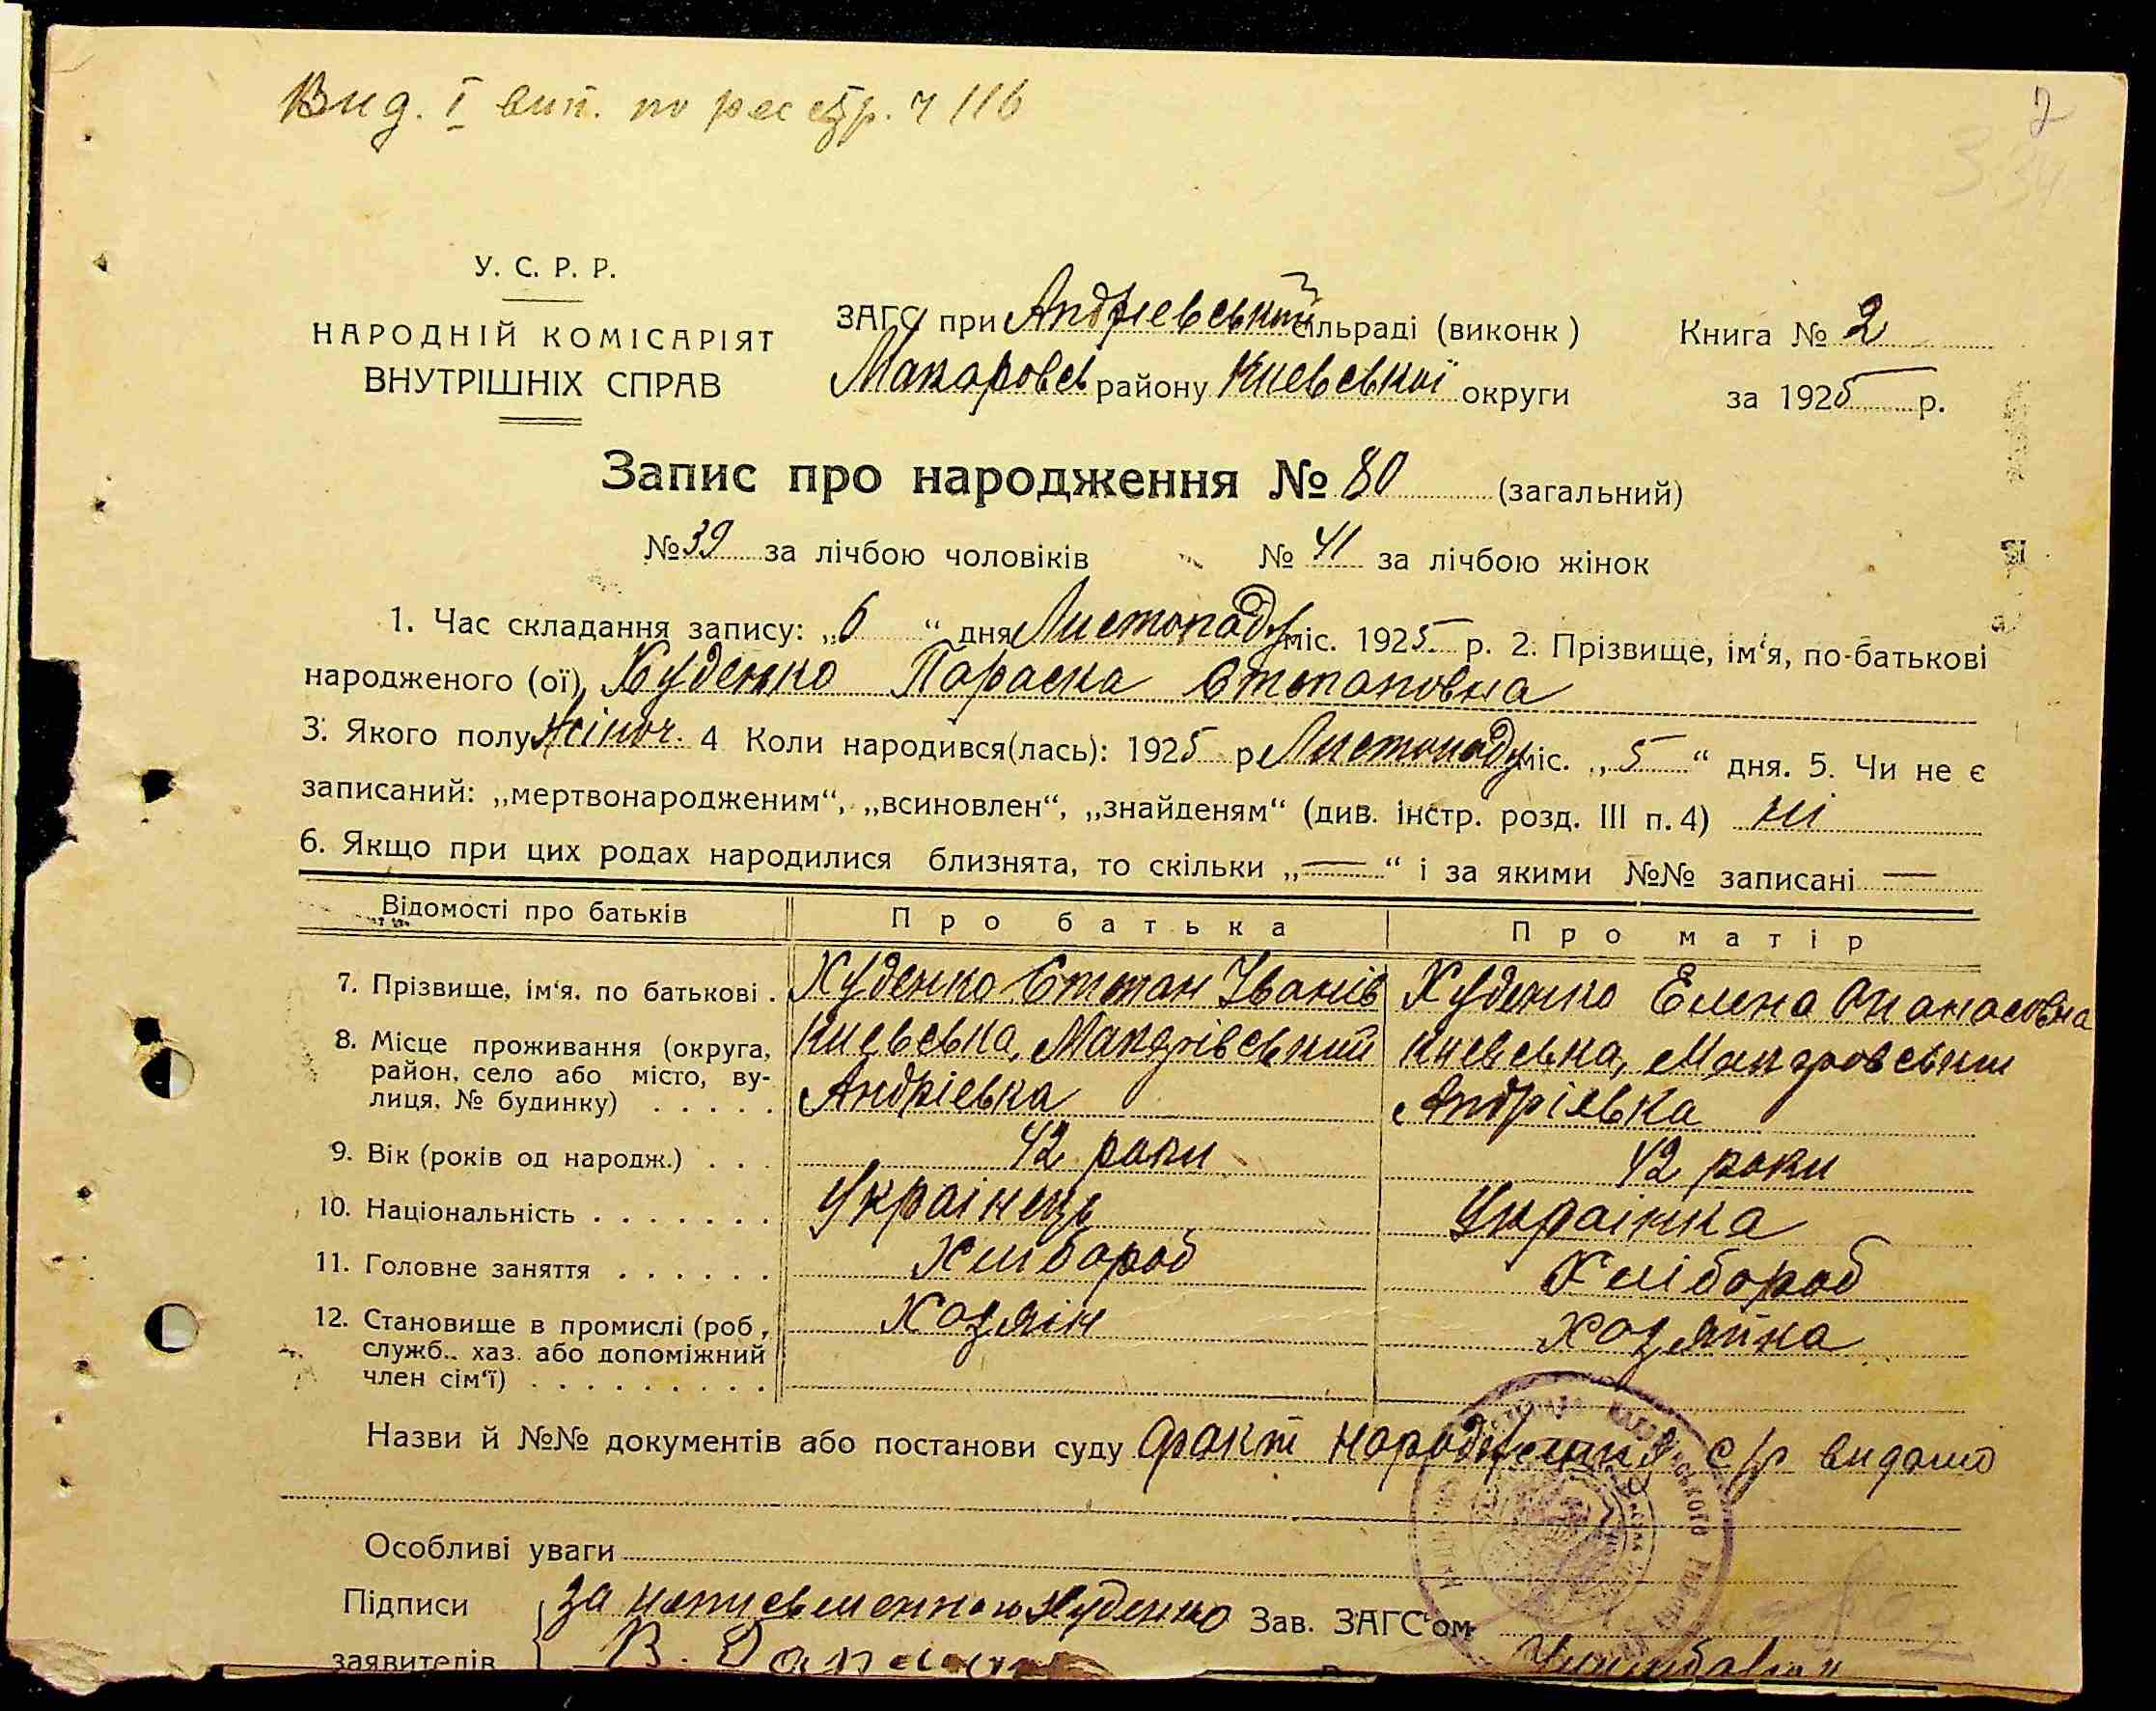 Вид. I вип. по реєстр. ч 116
2
У. С. Р. Р.
НАРОДНІЙ КОМІСАРІЯТ
ВНУТРІШНІХ СПРАВ
ЗАГС при Андрієвський сільраді (виконк )
Макаровсь району Киевської округи
Книга № 2
за 1925 р.
Запис про народження № 80 (загальний)
№ 39 за лічбою чоловіків № 41 за лічбою жінок
1. Час складання запису: „6 “ дня Листопаду міс. 1925 р. 2. Прізвище, ім‘я, по-батькові
народженого (ої) Худенко Параска Степановна
3. Якого полу жіноч. 4 Коли народився(лась): 1925 р Листопаду міс. „ 5 “ дня. 5. Чи не є
записаний: „мертвонародженим“, „всиновлен“, „знайденям“ (див. інстр. розд. III п. 4) ні
6. Якщо при цих родах народилися близнята, то скільки „—“ і за якими №№ записані —
Відомості про батьків Про батька Про матір
7. Прізвище, ім‘я, по батькові . Худенко Степан Іванів Худенко Елена Опанасовна
8. Місце проживання (округа, район, село або місто, ву-лиця, № будинку) . . . . .
Киевська, Макарівський Киевська, Макаровський
Андріевка Андріевка
9. Вік (років од народж.) . . . 42 роки 42 роки
10. Національність . . . . . . . Українець Українка
11. Головне заняття . . . . . . Хлібороб Хлібороб
12. Становище в промислі (роб , Хозяін Хозяйка
служб., хаз. або допоміжний
член сім‘ї) . . . . . . . . .
Назви й №№ документів або постанови суду факт народження с/р видано
Особливі уваги
Підписи За неписьменною Худенко Зав. ЗАГС‘ом
заявителів В.